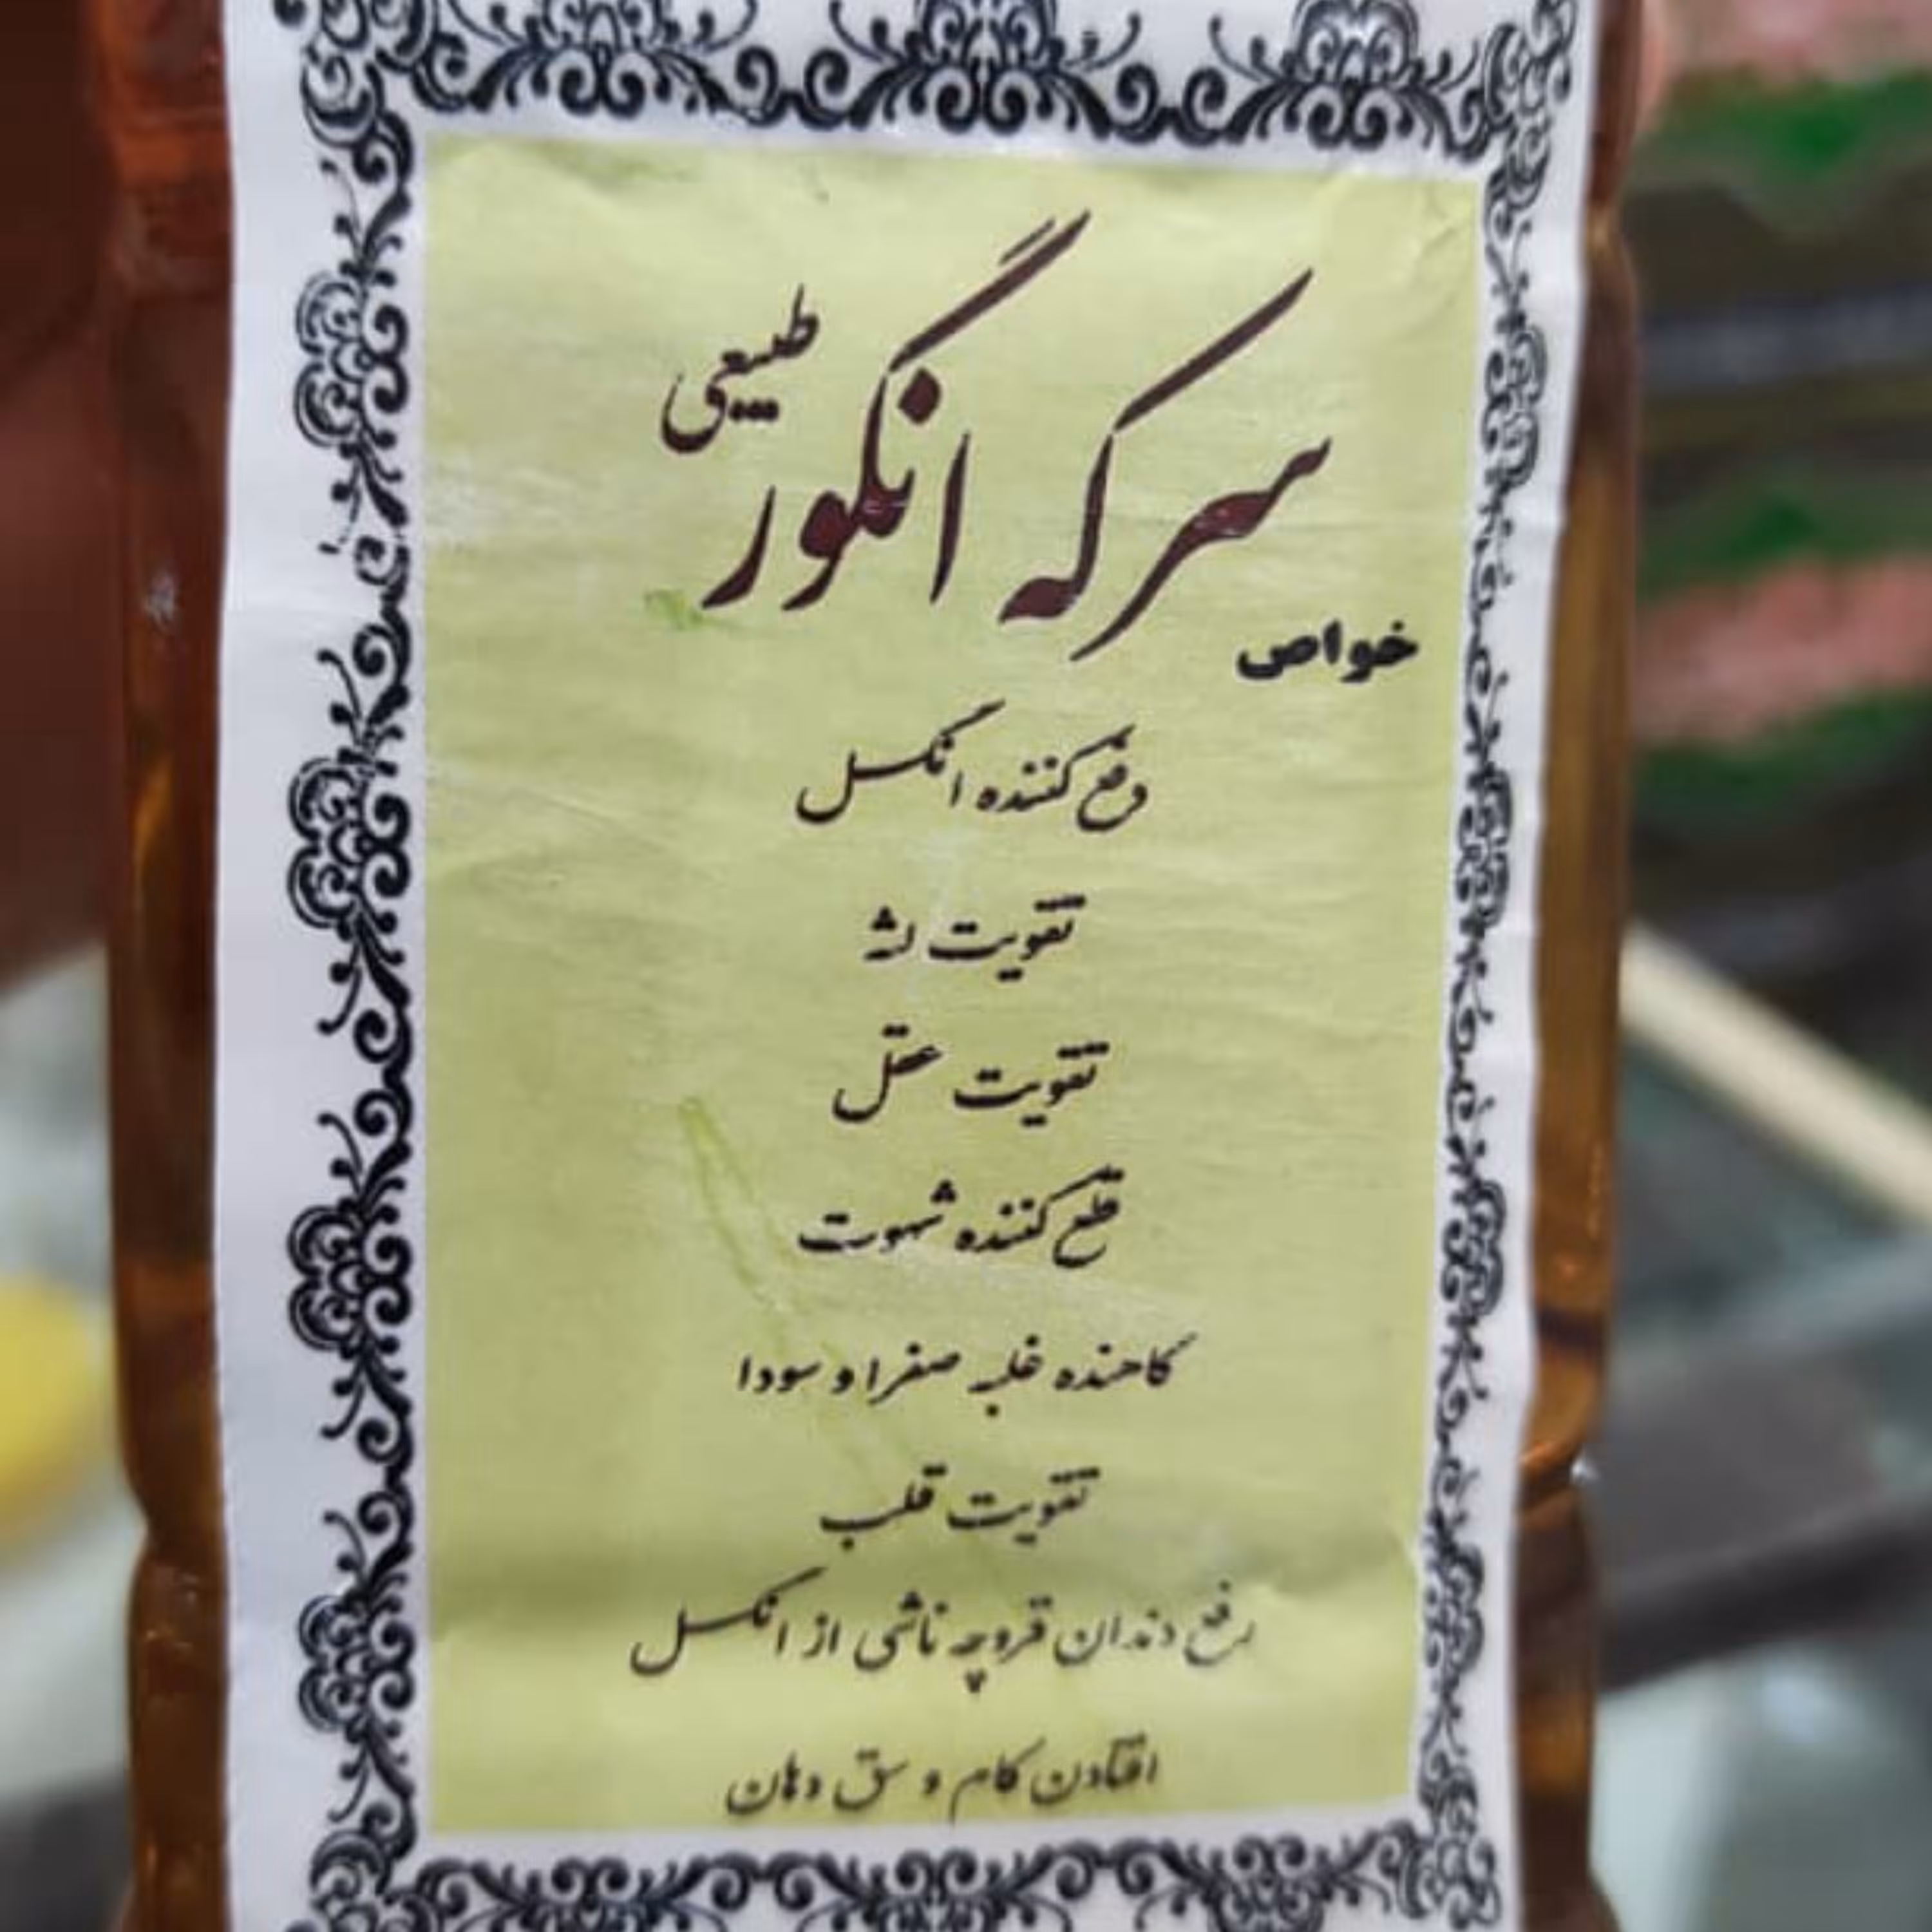 سرکه انگور طبیعی
خواص
دفع کننده انگل
تقویت لثه
تقویت عقل
قطع کننده شهوت
کاهنده غلبه صفرا و سودا
تقویت قلب
رفع دندان قروچه ناشی از انگل
افتادن کام و سق دهان